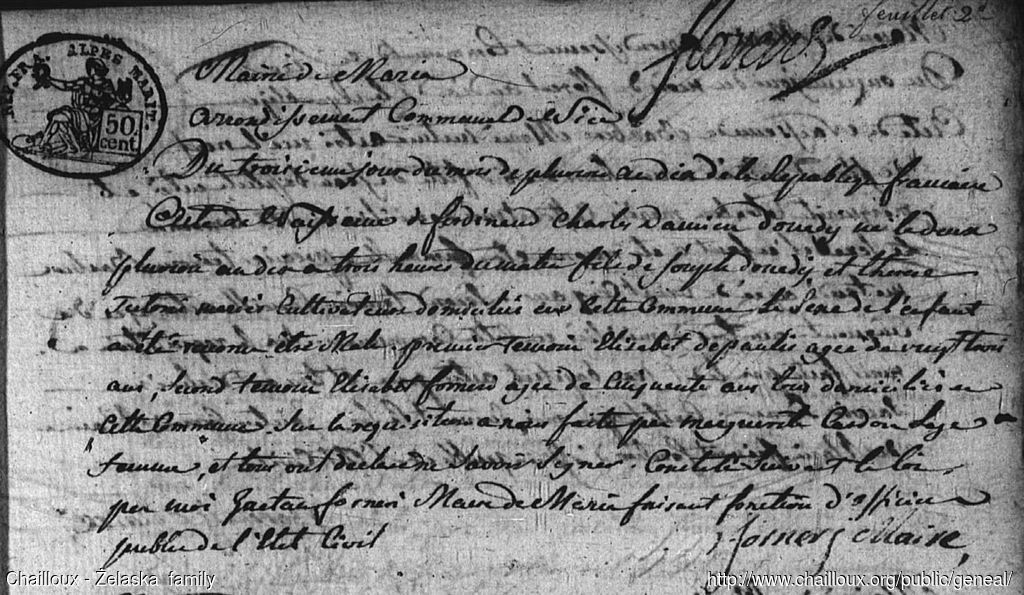 feuillet 2e
forneri
ALPES MARIT.
50
cent.
Mairie de Marie
arrondissement Communal de Nice
Du troisieme jour du mois de pluviose an dix de la Republique francaise
Acte de Naissance de ferdinand Charles Damien Donedy né le deux
pluviose an dix a trois heures du matin fils de Joseph donedy et therese
mariés Cultivateurs domiciliés en Cette Commune Le Sexe de l'enfant
a été reconnu etre Male. premier temoin Elisabet depaulis agée de vingt trois
ans, second temoin Elisabet forneris agée de Cinquente ans tous domiciliés en
Cette Commune. Sur la requisition a nous faite par marguerite Cardon Sage
femme, et tous ont declaré ne Savoir Signer. Constaté Suivant la loi
par moi Gaetan forneri Maire de Marie faisant fonction d'officier
public de l'Etat Civil
forneri Maire,
Chailloux - Żelaska family
http://www.chailloux.org/public/geneal/